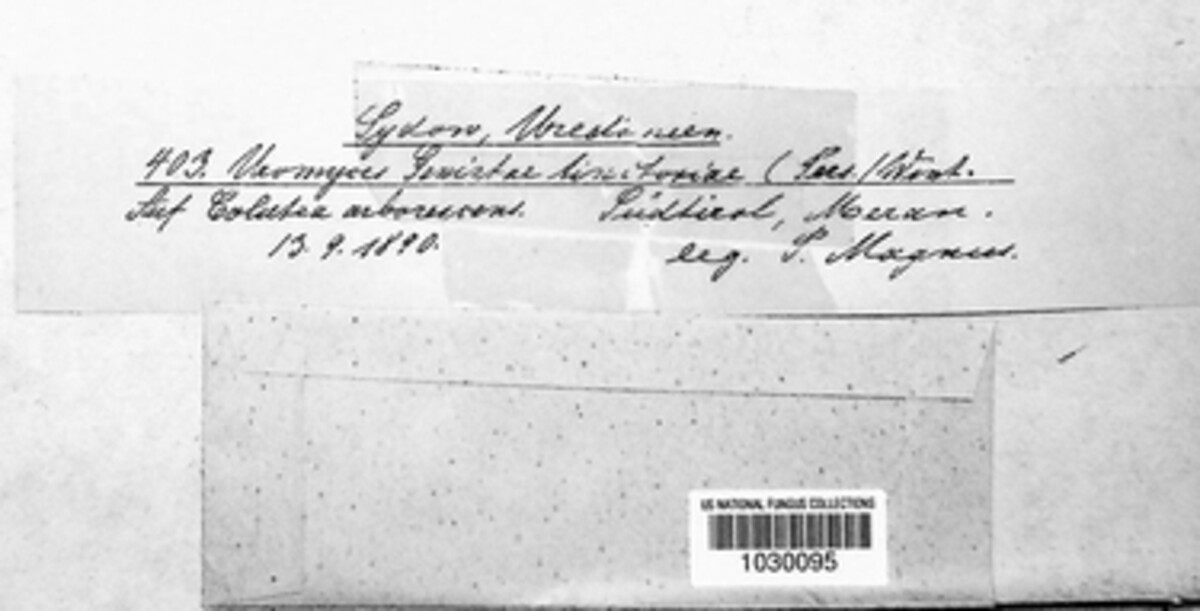 Sydow, Uredineen.
403. Uromyces Genistae tinctoriae (Pers.) Wint.
Auf Colutea arborescens. Südtirol, Meran.
13. 9. 1890. leg. P. Magnus.
US NATIONAL FUNGUS COLLECTIONS
1030095